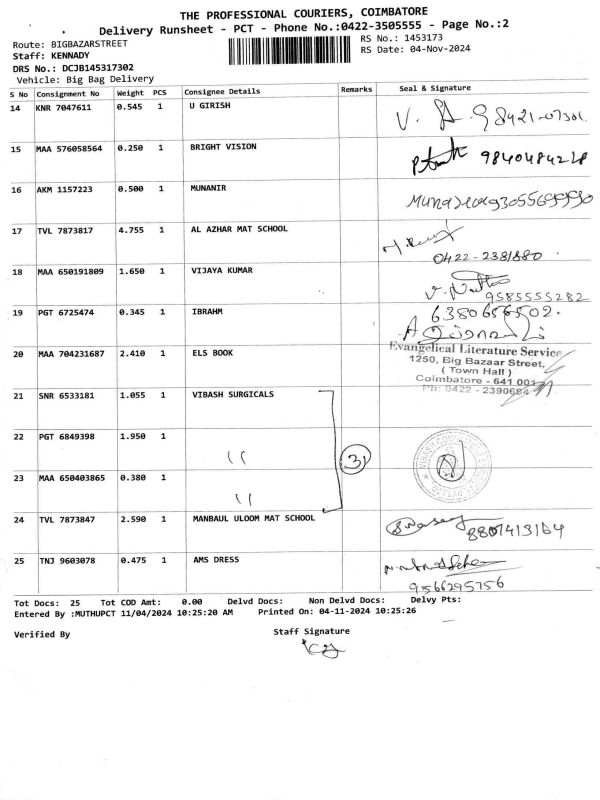 THE PROFESSIONAL COURIERS, COIMBATORE
Delivery Runsheet - PCT - Phone No.:0422-3505555 - Page No.:2
Route: BIGBAZARSTREET
RS No.: 1453173
Staff: KENNADY
RS Date: 04-Nov-2024
DRS No.: DCJB145317302
Vehicle: Big Bag Delivery
S No Consignment No Weight PCS Consignee Details Remarks Seal & Signature
14 KNR 7047611 0.545 1 U GIRISH
15 MAA 576058564 0.250 1 BRIGHT VISION 9840484228
16 AKM 1157223 0.500 1 MUNANIR
17 TVL 7873817 4.755 1 AL AZHAR MAT SCHOOL
0422-2381880
18 MAA 650191809 1.650 1 VIJAYA KUMAR
9585555282
19 PGT 6725474 0.345 1 IBRAHM 6380656502.
20 MAA 704231687 2.410 1 ELS BOOK
Evangelical Literature Service
1250, Big Bazaar Street,
( Town Hall )
Coimbatore - 641 001
Ph: 0422 - 2390684
21 SNR 6533181 1.055 1 VIBASH SURGICALS
22 PGT 6849398 1.950 1 "
3
23 MAA 650403865 0.380 1 "
24 TVL 7873847 2.590 1 MANBAUL ULOOM MAT SCHOOL
8807413164
25 TNJ 9603078 0.475 1 AMS DRESS
9566295756
Tot Docs: 25 Tot COD Amt: 0.00 Delvd Docs: Non Delvd Docs: Delvy Pts:
Entered By :MUTHUPCT 11/04/2024 10:25:20 AM Printed On: 04-11-2024 10:25:26
Verified By
Staff Signature